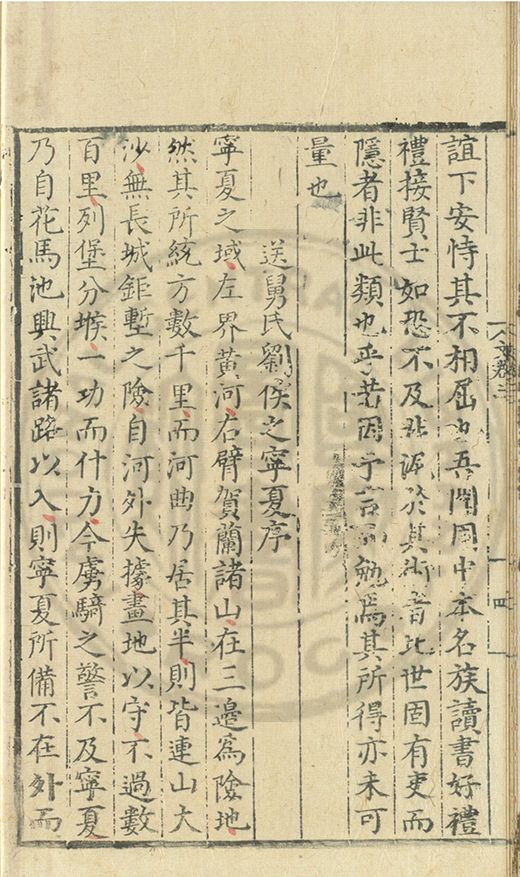 誼下安恃其不相屈也吾聞國中本名族讀書好禮
禮接賢士如恐不及非泥於其術者比世固有吏而
隱者非此類也乎若因予言而勉焉其所得亦未可
量也
送舅氏劉侯之寧夏序
寧夏之域左界黃河右臂賀蘭諸山在三邊為險地
然其所統方數千里而河曲乃居其半則皆連山大
沙無長城鉅塹之險自河外失據畫地以守不過數
百里列堡分堠一功而什力今虜騎之警不及寧夏
乃自花馬池興武諸路以入則寧夏所備不在外而